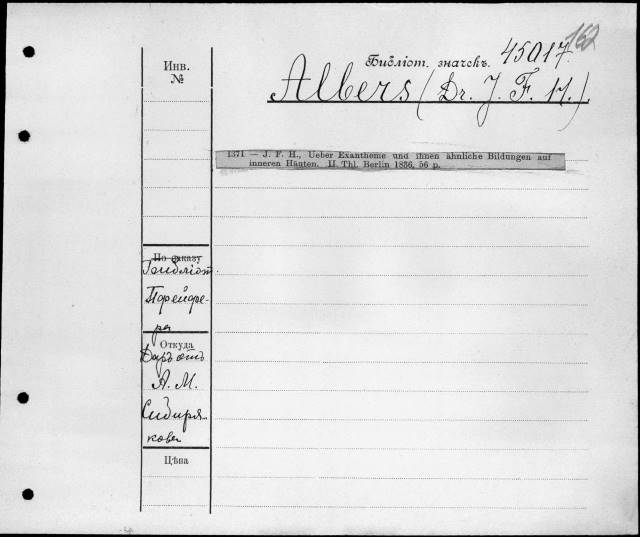 162
Библіот. значекъ. 45017.
Albers (Dr. J. F. H.).
Инв.
№
1371 — J. F. H., Ueber Exantheme und ihnen ähnliche Bildungen auf
inneren Häuten. II Thl. Berlin 1836, 56 p.
По заказу
Библіот.
Пфейфе-
ра
Откуда
Даръ отъ
А. М.
Сибиря-
кова
Цѣна